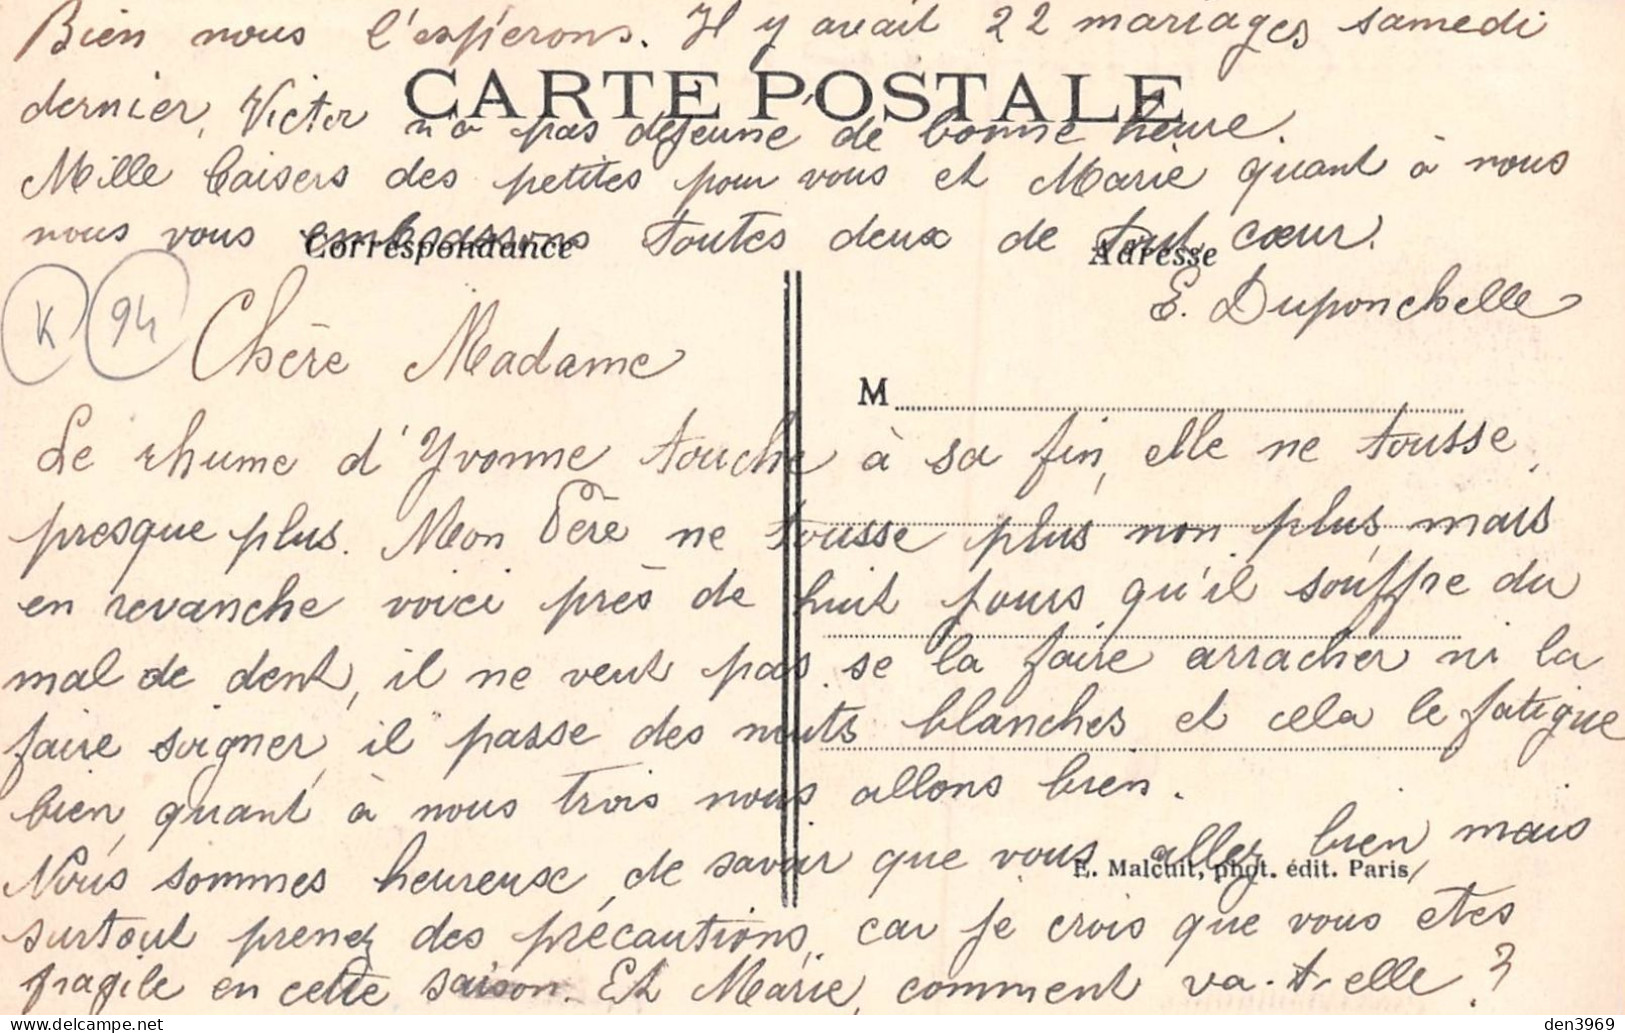 Bien nous l'espérons. Il y avait 22 mariages samedi
CARTE POSTALE
dernier, Victor n'a pas déjeuné de bonne heure.
Mille baisers des petites pour vous et Marie quant à nous
nous vous embrassons toutes deux de tout cœur.
Correspondance
Adresse
E. Duponchelle
K 94
Chère Madame
M
Le rhume d'Yvonne touche à sa fin, elle ne tousse
presque plus. Mon Père ne tousse plus non plus, mais
en revanche voici près de huit jours qu'il souffre du
mal de dent, il ne veut pas se la faire arracher ni la
faire soigner, il passe des nuits blanches et cela le fatigue
bien, quant à nous trois nous allons bien.
Nous sommes heureuse de savoir que vous allez bien mais
E. Malcuit, phot. édit. Paris
surtout prenez des précautions, car je crois que vous etes
fragile en cette saison. Et Marie, comment va-t-elle ?
den3969